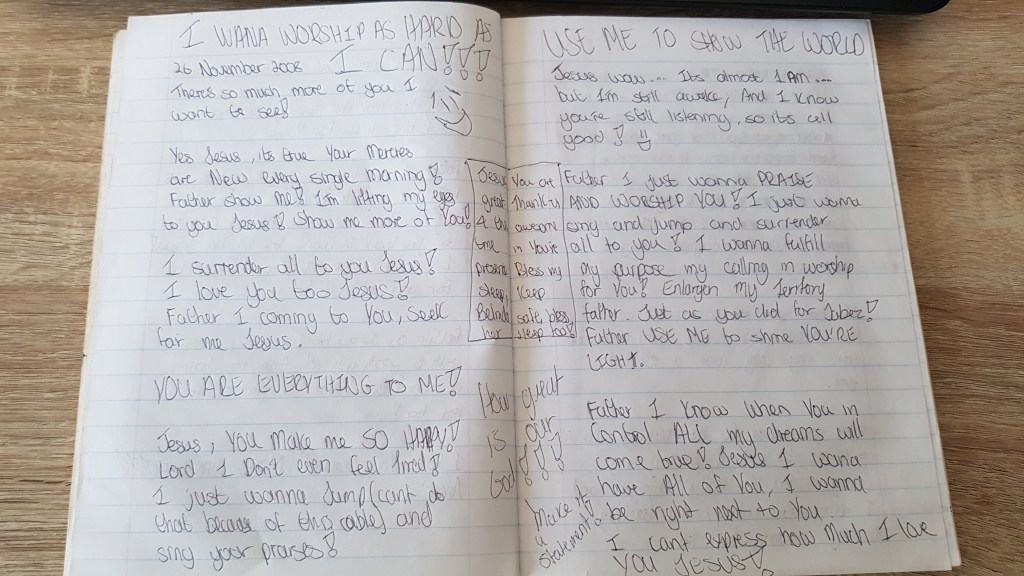 I WANA WORSHIP AS HARD AS
I CAN!!!
26 November 2008
Theres so much more of you I
want to see!
Yes Jesus, its true Your Mercies
are New every single morning!
Father show me! I'm lifting my eyes
to you Jesus! Show me more of You!
I surrender all to you Jesus!
I love you too Jesus!
Father I coming to You,
for me Jesus.
YOU ARE EVERYTHING TO ME!
Jesus, YOU make me SO HAPPY!
Lord I Don't even feel tired!
I just wanna Jump (cant do
that because of this cable) and
sing your praises!
Jesus You are
great Thank u
4 this awesome
time in You're
presence Bless my
sleep, Keep
safe, bless
her sleep too!
How great
is our
God!!!
USE ME TO SHOW THE WORLD
Jesus wow.... Its almost 1 AM ...
but I'm still awake, And I know
you're still listening, so its all
good!
Father I just wanna PRAISE
AND WORSHIP YOU! I just wanna
sing and jump and surrender
all to you! I wanna fulfill
my purpose my calling in worship
for You! Enlargen my Territory
father. Just as you did for Jabez!
Father USE ME to shine YOU'RE
LIGHT.
Father I know when You in
Control ALL my dreams will
come true! Jesus I wana
have All of You, I wanna
be right next to You
I cant express how much I love
YOU JESUS!
Make it
a
statement